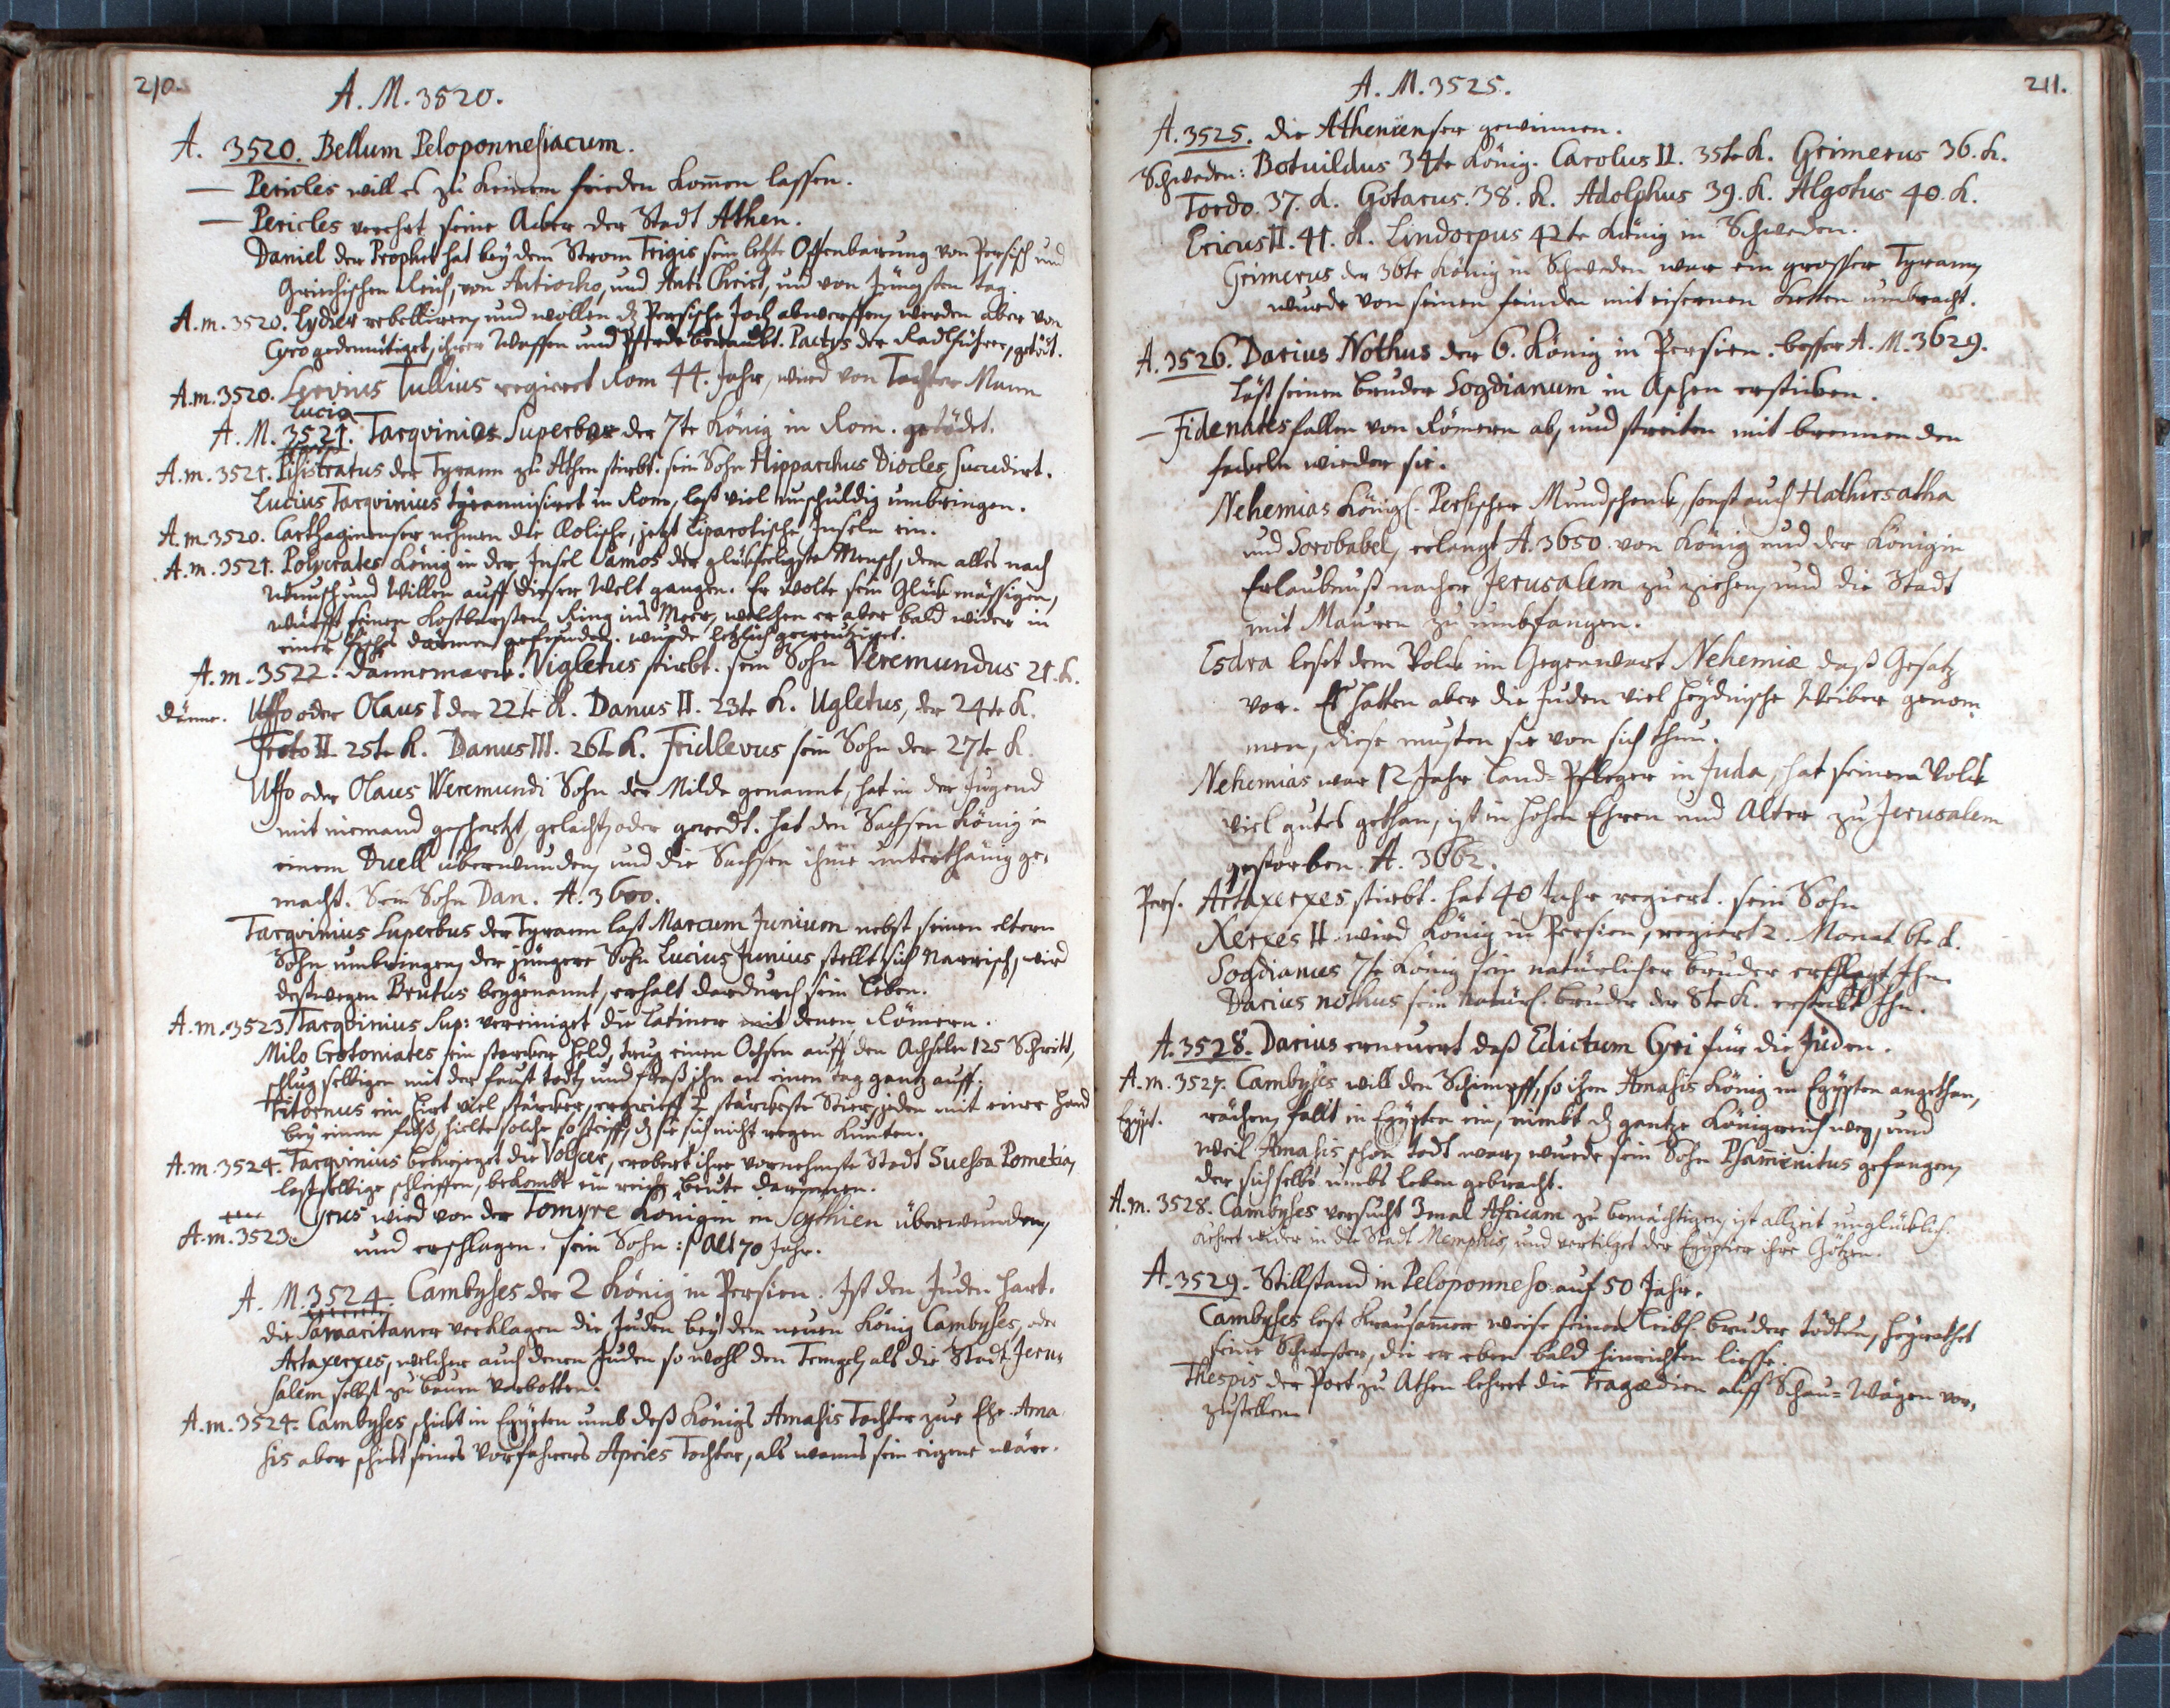 210.
A. M. 3520.
A. 3520. Bellum Peloponnesiacum.
— Pericles will es zu keinem frieden kom̄en lassen.
— Pericles verehrt seine Äcker der Stadt Athen.
Daniel der Prophet hat bey dem Strom Trigis sein letzte Offenbarung von Persisch und
Griechischen Reich, von Antiocho, und Anti Christ, und von Jüngsten tag.
A. m. 3520. Lydier rebelliren, und wollen dz Persische Joch abwerffen, werden aber von
Cyro gedemütiget, ihrer Waffen und Pferde beraubt. Pactys der Radlführer, getödt.
A. m. 3520. Servius Tullius regieret Rom 44. Jahr, wird von Tochter Mann
Lucio
A. M. 3521. Tarqvinio Superbo der 7te König in Rom. getödet.
A. m. 3521. Pisistratus der Tyrann zu Athen stirbt. sein Sohn Hipparchus Diocles, succedirt.
Lucius Tarqvinius tyrannisiret in Rom, last viel unschuldig umbringen.
A. m. 3520. Carthaginenser nehmen die Æolische, jetzt Liparotische Inseln ein.
A. m. 3521. Polycrates König in der Insel Samos der glückseeligste Mensch, dem alles nach
Wunsch und Willen auff dieser Welt gangen. Er wolte sein Glück mässigen,
würfft seinen kostbarsten Ring ins Meer, welchen er aber bald wider in
eines fisches därmen gefunden. wurde letzlich gecreutziget.
A. m. 3522. Dannemarck. Vigletus stirbt. sein Sohn Veremundus 21. K.
Dänne. Uffo oder Olaus I der 22te K. Danus II. 23te K. Ugletus, der 24te K.
Froto II. 25te K. Danus III. 26te K. Fridlevus sein Sohn der 27te K.
Uffo oder Olaus Weremundi Sohn der Milde genannt, hat in der Jugend
mit niemand geschertzt, gelacht, oder geredt. hat den Sachsen König in
einem Duell überwunden, und die Sachsen ihme unterthänig ge-
macht. Sein Sohn Dan. A. 3600.
Tarqvinius Superbus der Tyrann last Marcum Junium nebst seinen eltern
Sohn umbringen, der jüngere Sohn Lucius Junius stellt sich Narrisch, wird
desswegen Brutus beygenannt, erhalt dardurch sein Leben.
A. m. 3523. Tarqvinius Sup: vereiniget die Latiner mit denen Römern.
Milo Crotoniates ein starcker Held, trug einen Ochsen auff den Achseln 125 Schritt,
schlug selbigen mit der faust todt, und fraß ihn an einen tag gantz auff.
Titornus ein Hirt viel stärcker, ergrieff 2 stärckeste Stier, jeden mit einer Hand
bey einem fuß, hielte solche so steiff, dz sie sich nicht regen kunten.
A. m. 3524. Tarqvinius bekrieget die Volscer, erobert ihre vornehmste Stadt Suessa Pometia,
last selbige schleiffen, bekombt ein reiche beute darinnen.
A. m. 3523. Cyrus wird von der Tomyre Königin in Scythien überwunden,
und erschlagen. sein Sohn :/ Alt 70 Jahr.
A. M. 3524. Cambyses der 2 König in Persien. Ist den Juden hart.
die Samaritaner verklagen die Juden bey dem neuen König Cambyses, oder
Artaxerxes, welcher auch denen Juden so wohl den Tempel, als die Stadt Jeru-
salem selbst zu bauen verbotten.
A. m. 3524. Cambyses schickt in Egypten umb deß Königs Amasis Tochter zur Ehe. Ama-
sis aber schickt seines Vorfahrers Apries Tochter, als wanns sein eigene wäre.
211.
A. M. 3525.
A. 3525. die Athenienser gewinnen.
Schweden: Botuildus 34te König. Carolus II. 35te K. Grimerus 36. K.
Tordo. 37. K. Gotarus. 38. K. Adolphus 39. K. Algotus 40. K.
Ericus II. 41. K. Lindorpus 42te König in Schweden.
Grimerus der 36te König in Schweden war ein grosser Tyrann,
wurde von seinen feinden mit eisernen Ketten umbracht.
A. 3526. Darius Nothus der 6. König in Persien. besser A. M. 3629.
läst seinen bruder Sogdianum in Aschen ersticken.
— Fidenates fallen von Römern ab, und streiten mit brennenden
fackeln wieder sie.
Nehemias Königl. Persischer Mundschenck, sonst auch Hathirsatha
und Sorobabel, erlangt A. 3650. von König und der Königin
Erlaubnuß nacher Jerusalem zu ziehen, und die Stadt
mit Mauren zu umbfangen.
Esdra leset dem Volck im Gegenwart Nehemiæ daß Gesatz
vor. Es hatten aber die Juden viel Heydnische Weiber genom-
men, diese musten sie von sich thun.
Nehemias war 12 Jahr Land-Pfleger in Juda, hat seinem Volck
viel gutes gethan, ist in hohen Ehren und Alter zu Jerusalem
gestorben. A. 3662.
Pers. Artaxerxes stirbt. hat 40 Jahr regiert. sein Sohn
Xerxes II. wird König in Persien, regiert 2. Monat. 6te K.
Sogdianus 7te König sein natürlicher bruder erschlagt Ihn.
Darius nothus sein Natürl. bruder der 8te K. ersteckt Ihn.
A. 3528. Darius erneuert daß Edictum Cyri für die Juden.
A. m. 3527. Cambyses will den Schimpff, so ihm Amasis König in Egypten angethan,
Egÿpt. rächen, fallt in Egypten ein, nimbt dz gantze Königreich weg, und
weil Amasis schon todt war, wurde sein Sohn Psam̄enitus gefangen,
der sich selbs umbs leben gebracht.
A. m. 3528. Cambyses versucht 3mal Africam zu bemächtigen, ist allzeit unglücklich.
Kehret wider in die Stadt Memphis, und vertilget der Egÿptier ihre Götzen.
A. 3529. Stillstand in Peloponneso auf 50 Jahr.
Cambyses last Grausam̄er weise seinen Leibl. bruder tödten, heyrathet
seine Schwester, die er eben bald hinrichten liesse.
Thespis der Poet zu Athen lehret die Tragœdien auff Schau-Wägen vor-
zustellen.